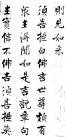 則見如來
須菩提白佛言世尊頗有
眾生得聞如是言說章句
生實信不佛告須菩提莫